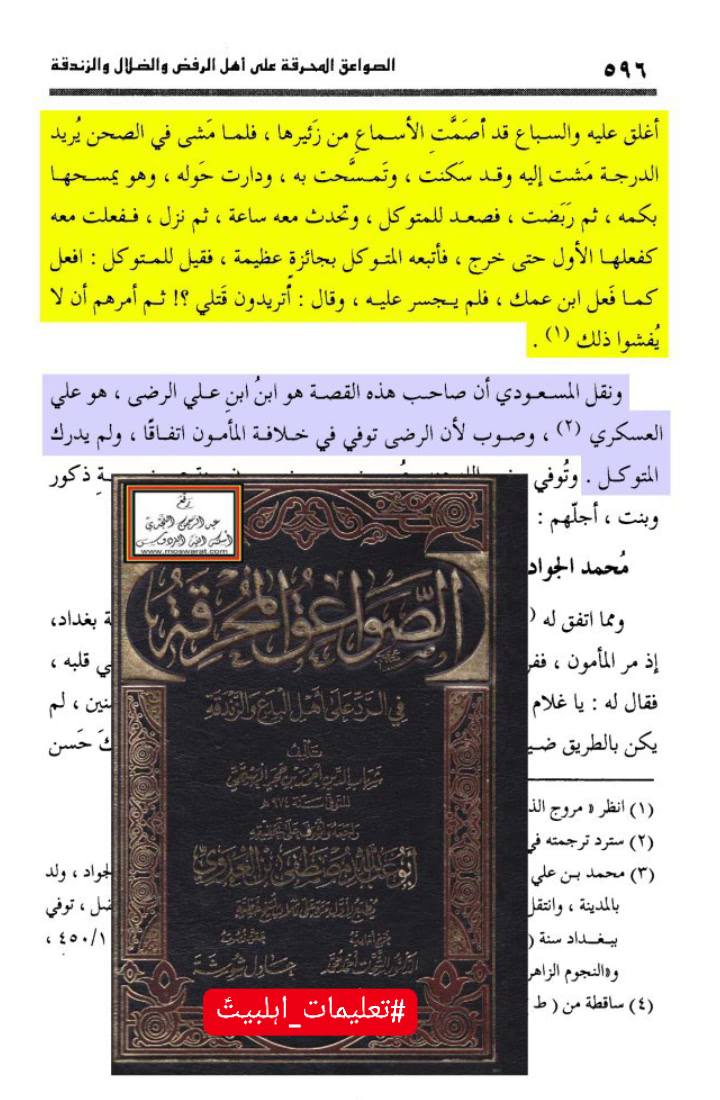 ٥٩٦
الصواعق المحرقة على أهل الرفض والضلال والزندقة
أغلق عليه والسباع قد أصَمَّتِ الأسماع من زَئيرها ، فلما مَشى في الصحن يُريد
الدرجة مَشت إليه وقد سَكنت ، وتَمسَّحت به ، ودارت حَوله ، وهو يمسحها
بكمه ، ثم رَبَضت ، فصعد للمتوكل ، وتحدث معه ساعة ، ثم نزل ، ففعلت معه
كفعلها الأول حتى خرج ، فأتبعه المتوكل بجائزةٍ عظيمة ، فقيل للمتوكل : افعل
كما فَعل ابن عمك ، فلم يجسر عليه ، وقال : أتريدون قَتلي ؟! ثم أمرهم أن لا
يُفشوا ذلك (١) .
ونقل المسعودي أن صاحب هذه القصة هو ابنُ ابنِ علي الرضى ، هو علي
العسكري (٢) ، وصوب لأن الرضى توفي في خلافة المأمون اتفاقًا ، ولم يدرك
المتوكل . وتُوفي
ةِ ذكور
وبنت ، أجلّهم :
مُحمد الجواد
ومما اتفق له (
ة بغداد،
إذ مر المأمون ، ففر
ي قلبه ،
فقال له : يا غلام
نين ، لم
يكن بالطريق ضي
كَ حَسن
(١) انظر « مروج الذ
(٢) سترد ترجمته في
(٣) محمد بن علي
لجواد ، ولد
بالمدينة ، وانتقل
ضل ، توفي
ببغداد سنة (
٤٥٠/١ ،
و«النجوم الزاهر
(٤) ساقطة من ( ط
رَفعُ
عبد الرحمن النجدي
أسكنه الله الفردوس
www.moswarat.com
الصَّواعِقُ المُحْرِقَة
في الرد على أهل البدع والزندقة
تأليف
شهاب الدين أحمد بن حجر الهيتمي
المتوفى سنة ٩٧٤ هـ
أبو عبد الله مصطفى بن العدوي
عادل شوشة
#تعليمات_اہلبیتؑ